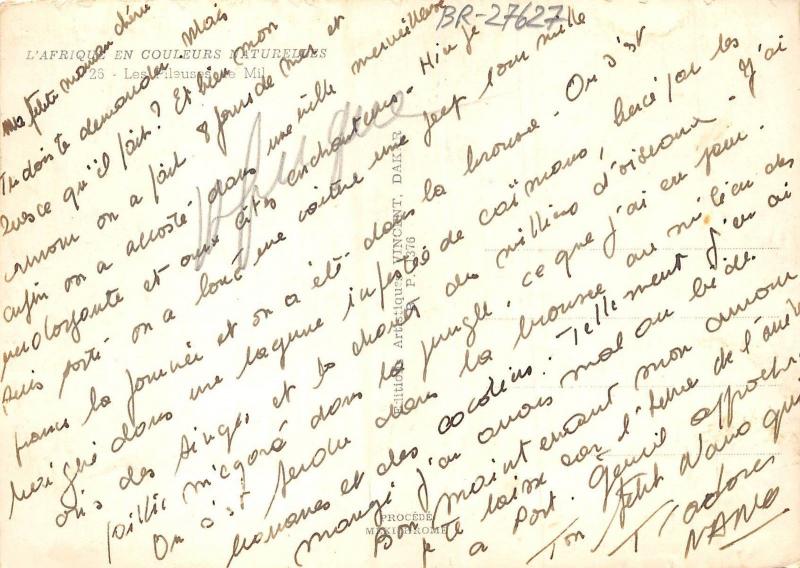 BR-27627
L'AFRIQUE EN COULEURS NATURELLES
26 - Les Pileuses de Mil
Editions Artistiques VINCENT, DAKAR
B. P. 376
PROCÉDÉ
MEXICHROME
Ma petite maman chérie
Tu dois te demander. Mais
Quesce qu'il fait? Et bien mon
amour on a fait 8 jours de mer et
enfin on a accosté dans une ville merveilleuse
verdoyante et aux cites enchanteurs. Hier je
suis sorti on a loué une voiture une jeet 1000 mille
francs la journée et on a été dans la brousse. On s'est
baigné dans une lagune infestée de caïmans, bercé par les
cris des singes et le chant des milliers d'oiseaux. J'ai
faillit m'égaré dans la jungle, ce que j'ai eu peur.
On s'est perdu dans la brousse au milieu des
bananes et des cocotiers. Tellement j'en ai
mangé j'en avais mal au bide.
Bon maintenant mon amour
je te laisse car l'heure de l'arrivé
a Port. Gentil approche.
Ton petit Nano qui
T'adores
NANO